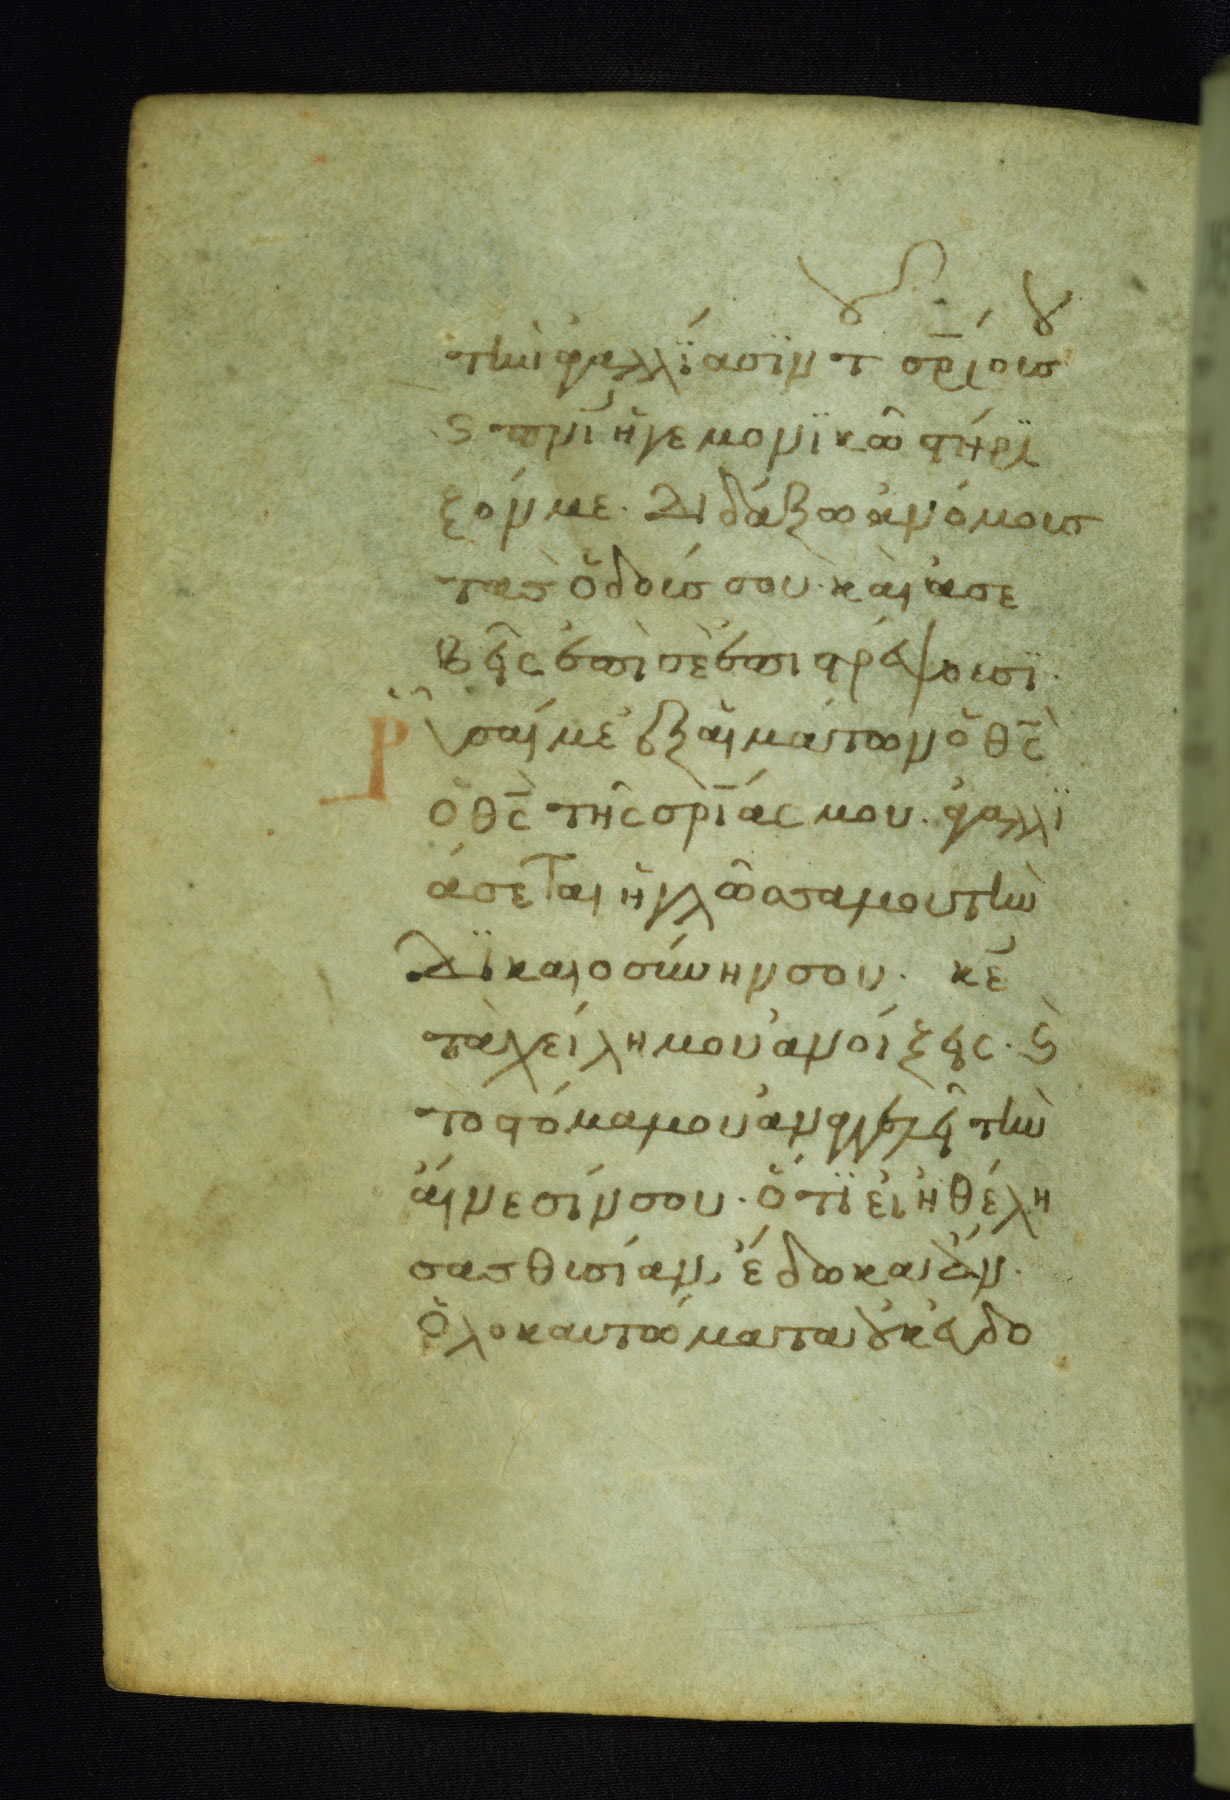 τὴν ἀγαλλϊάσϊν τοῦ σρίου σου
ϛ πνϊ ἡγεμονϊκῶ στήρϊ
ξόν με. Διδάξω ἀνόμους
τὰς ὁδούς σου. καὶ ἀσε
βεῖς ἐπὶ σὲ ἐπιστρέψουσϊ.
Ῥῦσαί με ἐξ αἱμάτων ὁ θς
ὁ θς τῆς σρίας μου. ἀγαλλϊ
άσεται ἡ γλῶσσα μου τὴν
Δϊκαιοσύνην σου. κε
τὰ χείλη μου ἀνοίξεις. ϛ
τὸ στόμα μου ἀναγγελεῖ τὴν
αἴνεσίν σου. ὅτϊ εἰ ἠθέλη
σας θυσίαν, ἔδωκα ἄν.
Ὁλοκαυτώματα οὐκ εὐδο